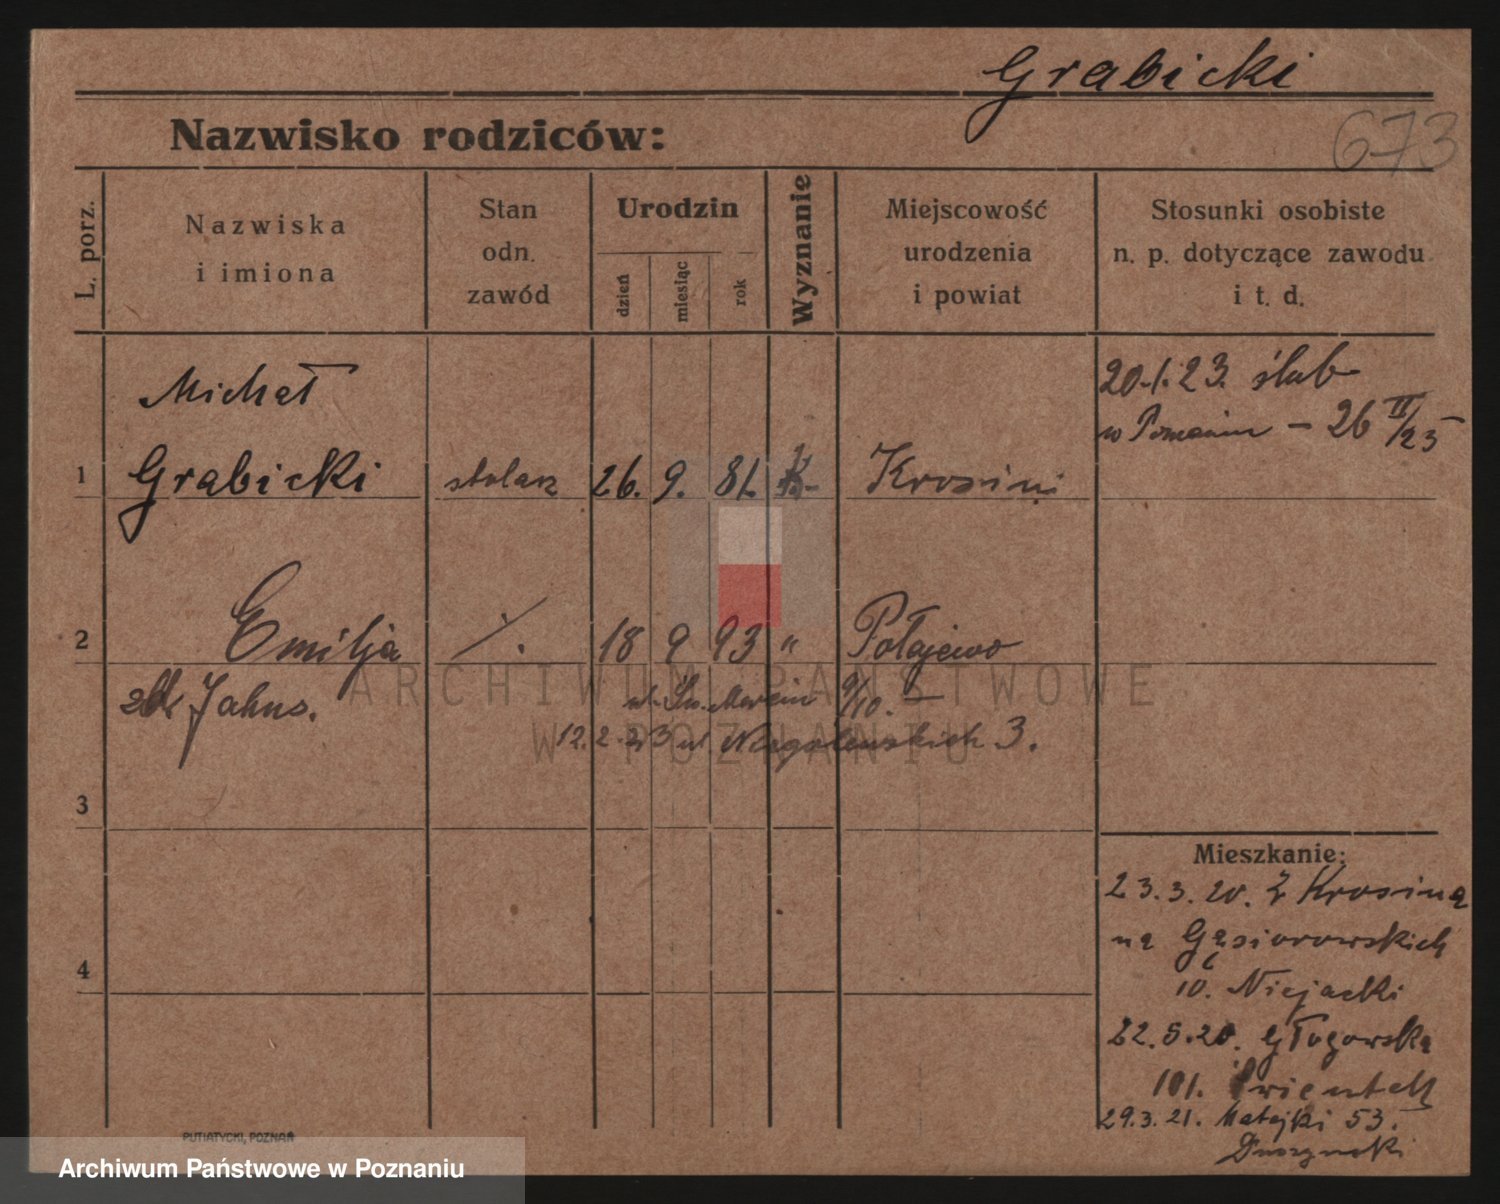 Grabicki
673
Nazwisko rodziców:
L. porz.
Nazwiska
i imiona
Stan
odn.
zawód
Urodzin
dzień
miesiąc
rok
Wyznanie
Miejscowość
urodzenia
i powiat
Stosunki osobiste
n. p. dotyczące zawodu
i t. d.
20.1.23. ślub
w Poznaniu – 26 II/23
Michał
1 Grabicki stolarz 26. 9. 81. K. Krosini
2 Emilja 18 9 93 " Połajewo
Jahns.
ul. Św. Marcin 9/10. –
12.2.23 ul Nagolewskich 3.
ARCHIWUM PAŃSTWOWE
W POZNANIU
3
Mieszkanie:
23.3.20. z Krosina
na Gąsiorowskich
4
10. Niejacki
22.5.20. Głogowska
101.
29.3.21. Matejki 53.
PUTIATYCKI, POZNAŃ
Archiwum Państwowe w Poznaniu